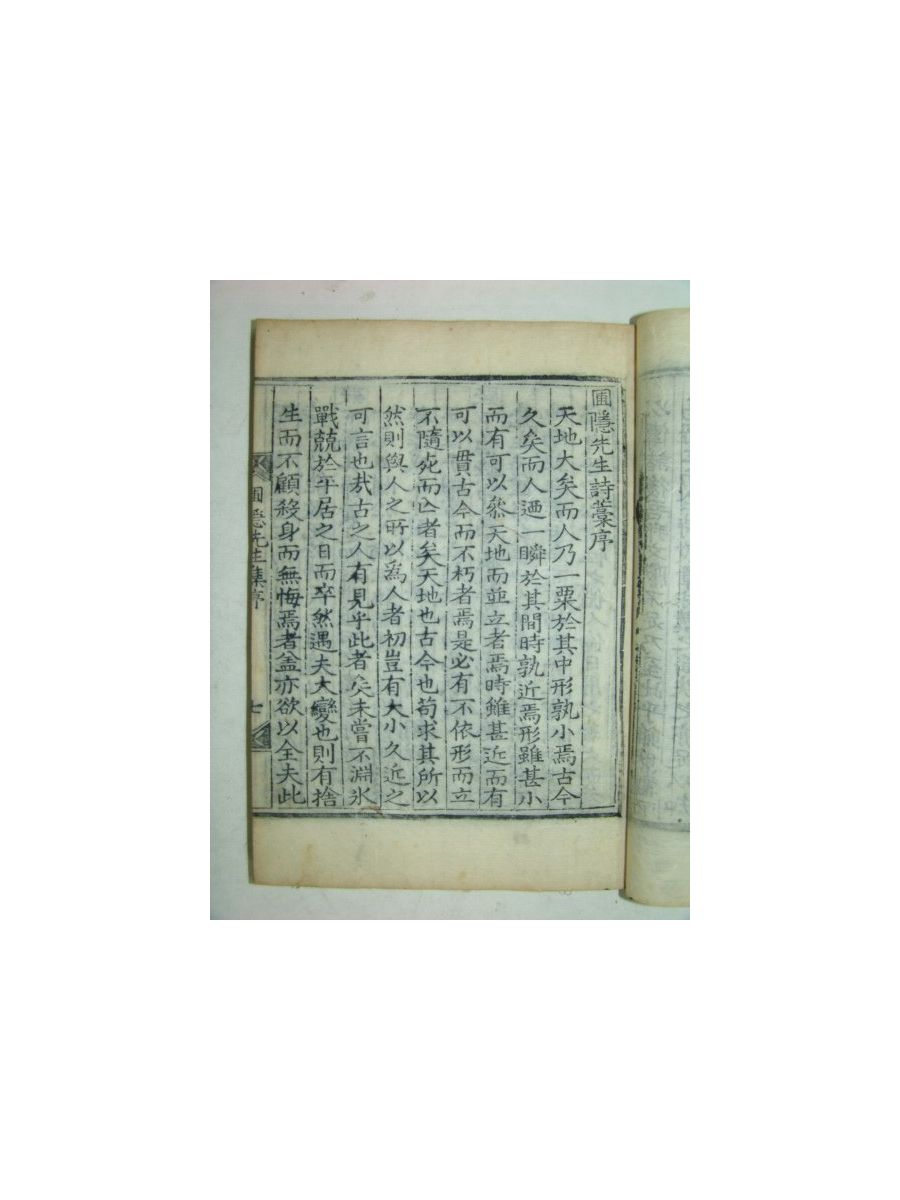 圃隱先生詩藁序
天地大矣而人乃一粟於其中形孰小焉古今
久矣而人廼一瞬於其間時孰近焉形雖甚小
而有可以叅天地而並立者焉時雖甚近而有
可以貫古今而不朽者焉是必有不依形而立
不隨死而亡者矣天地也古今也苟求其所以
然則與人之所以爲人者初豈有大小久近之
可言也㢤古之人有見乎此者矣未嘗不淵氷
戰兢於平居之日而卒然遇夫大變也則有捨
生而不顧殺身而無悔焉者盖亦欲以全夫此
圃隱先生集序
七